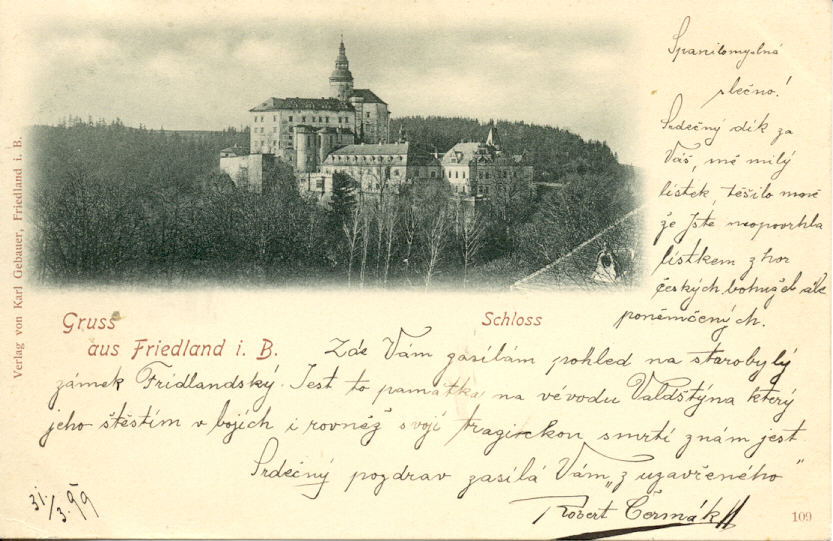 Spanilomyslná
slečno!
Srdečný dík za
Váš, mě milý
lístek, těšilo mně
že Jste neopovrhla
lístkem z hor
českých bohužel ale
poněmčených.
Gruss
aus Friedland i. B.
Schloss
Zde Vám zasílám pohled na starobylý
zámek Fridlandský. Jest to památka na vévodu Valdštýna který
jeho štěstím v bojích i rovněž svojí tragickou smrtí znám jest.
Srdečný pozdrav zasílá Vám „z uzavřeného"
Robert Čermák
31./3. 99
Verlag von Karl Gebauer, Friedland i. B.
109